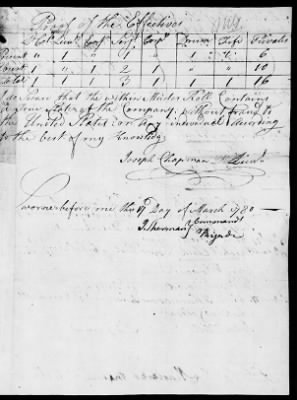 Proof of the Effectives
Capt Lieut Ensn Serjt Corpl Drum Fife Privates
Present 1 1 1 1 6
Absent 1 2 1 10
Total 1 1 3 1 1 16
I do Swear that the within Muster Roll Contains
a true State of the Company, without fraud to
the United States or any individual according
to the best of my Knowledge
Joseph Chapman Lieut
Sworne before me this 17 Day of March 1780
I. Sherman Command
Brigade